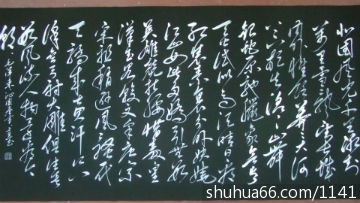 北国风光千里冰封
万里雪飘望长城
内外惟余莽莽大河
上下顿失滔滔山舞
银蛇原驰蜡象欲与
天公试比高须晴日看
红装素裹分外妖娆
江山如此多娇引无数
英雄竞折腰惜秦皇
汉武略输文采唐宗
宋祖稍逊风骚一代
天骄成吉思汗只
识弯弓射大雕俱往矣
数风流人物还看今
朝
毛泽东沁园春雪
shuhua66.com/1141